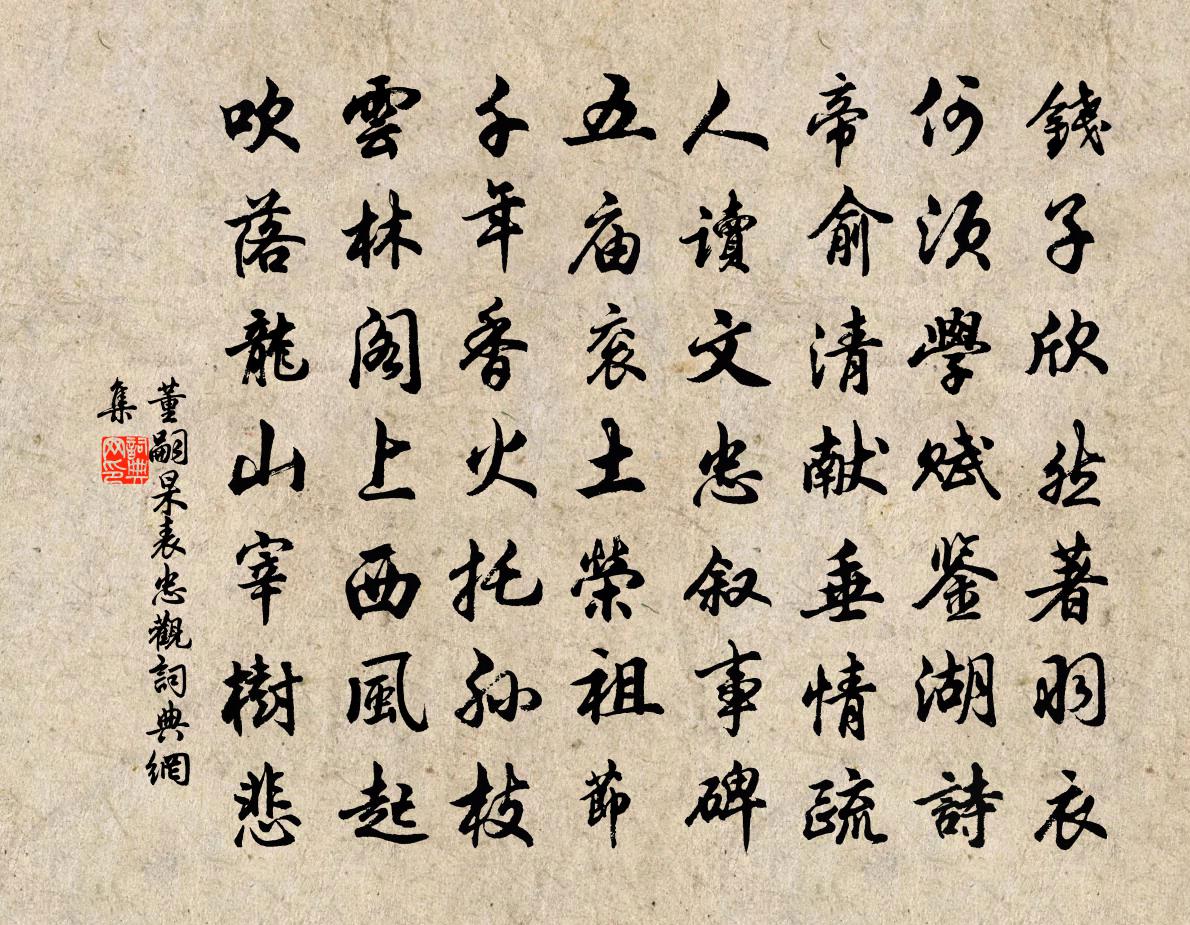 錢子欣然著羽衣
何須學賦鉴湖詩
帝俞清献垂情疏
人讀文忠叙事碑
五庙衮土榮祖節
千年香火托孫枝
雲林阁上西風起
吹落龍山宰樹悲
董嗣杲表忠觀詞典網
集
詞典网印